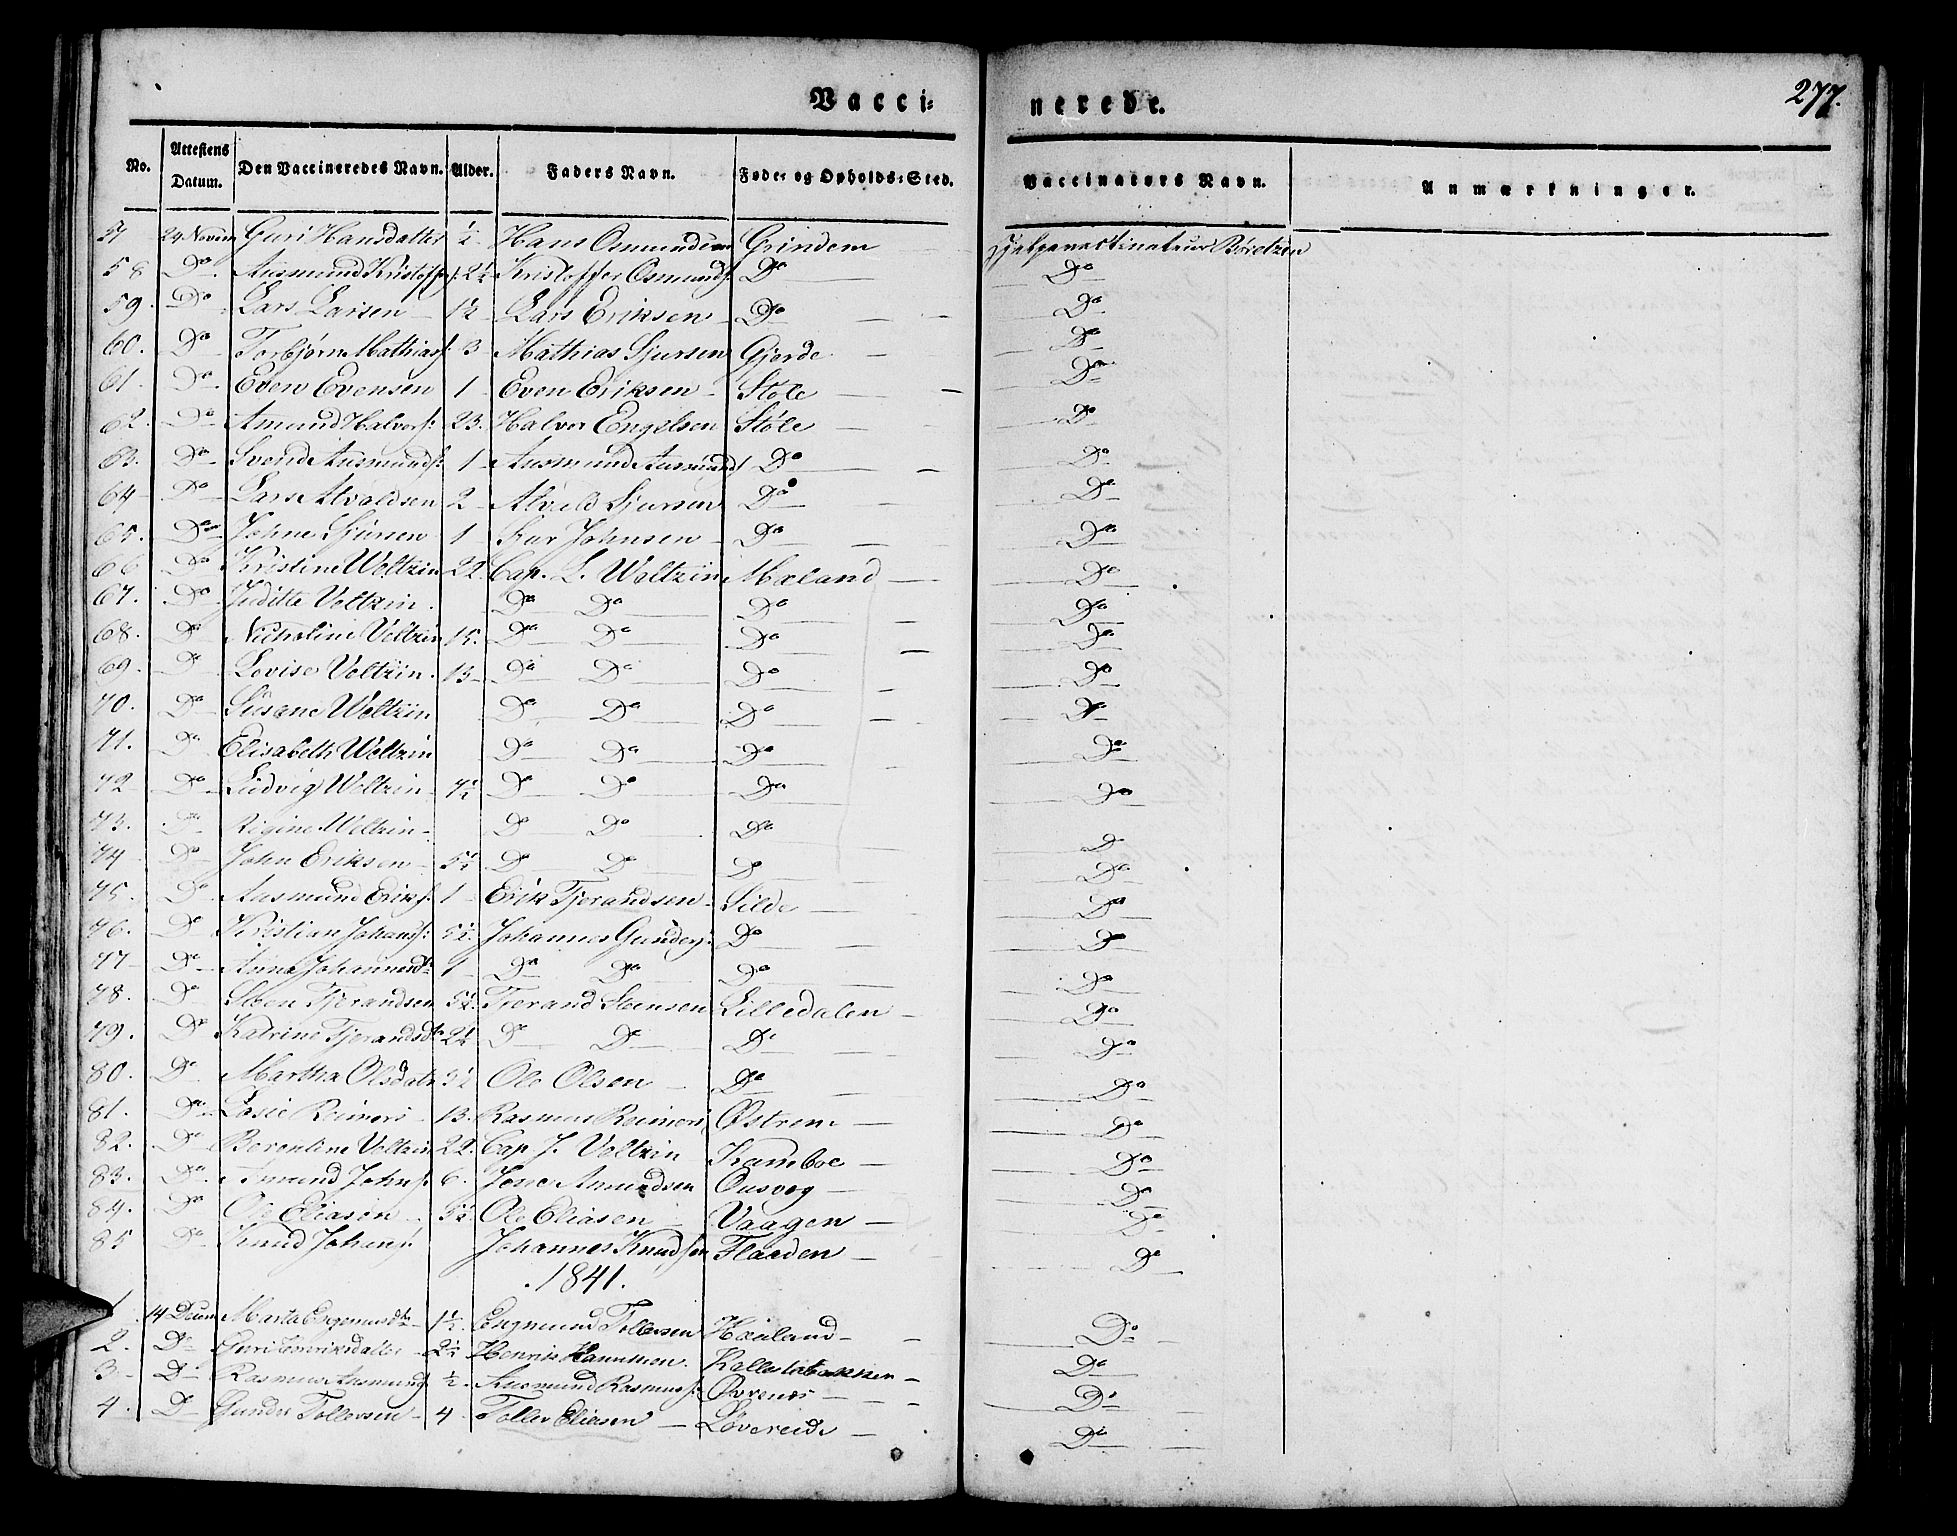 Vacci= nerede. 277.
No. Attestens Datum. Den Vaccineredes Navn. Alder. Faders Navn. Føde= og Opholds=Sted. Vaccinators Navn. Anmærkninger.
57 24 Novem Guri Hansdatter ½ Hans Osmundsen Grindem
58 Do Aasmund Kristoff 2½ Kristoffer Osmunds: Do Do
59. Do Lars Larsen 1½ Lars Eriksen Do Do
60. Do Torbjørn Mathias: 3 Mathias Sjursen Gjerde Do
61. Do Even Evensen 1 Even Eriksen Støle Do
62. Do Amund Halvors: 23. Halvor Engelsen Støle Do
63. Do Svend Aasmunds: 1 Aasmund Aasmund Do Do
64 Do Lars Alvaldsen 2 Alvald Sjursen Do Do
65. Do Johne 1 Johnsen Do Do
66 Do Kristine Weltzin 22. Cap. L. Weltzin Mæland Do
67. Do Juditte Veltzin. Do Do Do Do
68. Do Nicholine Veltzin 15. Do Do Do Do
69. Do Lovise Veltzin. 13 Do Do Do Do
70. Do Susane Weltzin Do Do Do Do
71. Do Elisabeth Weltzin Do Do Do Do
72 Do Ludvig Weltzin 7½ Do Do Do Do
73. Do Rigine Weltzin Do Do Do Do
74 Do John Eriksen 5½ Do Do Do Do
75. Do Aasmund Eriks: 1 Erik Tjerandsen Silde Do
76. Do Kristian Johans: 5½. Johannes Gunders: Do Do
77 Do Anna Johannesd: 1 Do Do Do Do
78. Do Steen Tjerandsen 5½. Tjerand Steensen Lilledalen Do
79. Do Katrine Tjerandsd 2½ Do Do Do Do
80. Do Martha Olsdatr 3½ Ole Olsen Do Do
81. Do Reimers 13. Rasmus Reimers Østrem Do
82. Do Berentine Veltzin 22. Cap J. Veltzin Do
83. Do Amund Johns: 6. Amundsen Do
84. Do Ole Eliasen 5½ Ole Eliasen Vaagen Do
85 Do Knud Johans: Johannes Knudsen Do
1841.
1 14 Decem Marta 1½. Engmund Tollevsen Do
2. Do Guri Henriksdatter 2½ Henrik Do
3 Do Rasmus Aasmund ½ Aasmund Rasmus: Do
4. Do Gunder Tollevsen 4 Tollev Eliasen Løvereide Do